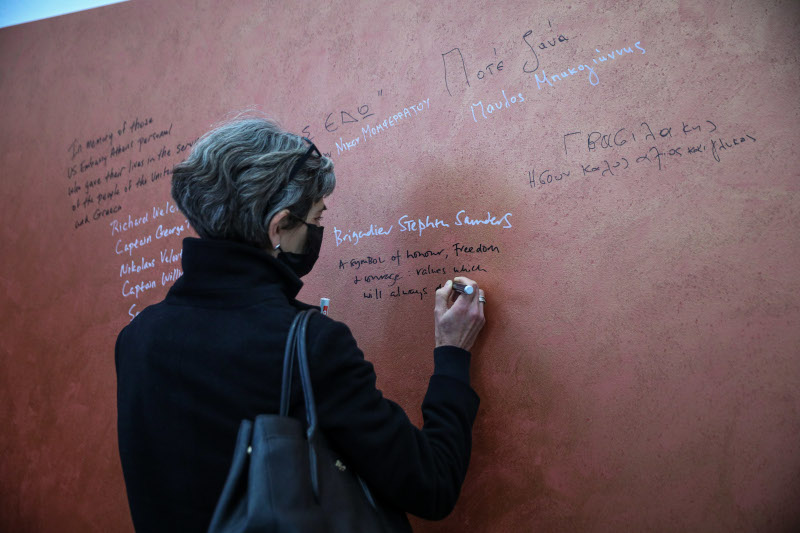 In memory of those
US Embassy Athens personnel
who gave their lives in the
of the people of the United
and Greece
Richard Welch
Captain George
Nikolas
Captain
ΕΔΩ"
Νίκος Μομφερράτο
Ποτέ ξανά
Παύλος Μπακογιάννης
Γ Βασιλάκης
Ήσουν καλός άξιος και γλυκός
Brigadier Stephen Saunders
A symbol of honour, Freedom
& courage: values which
will always